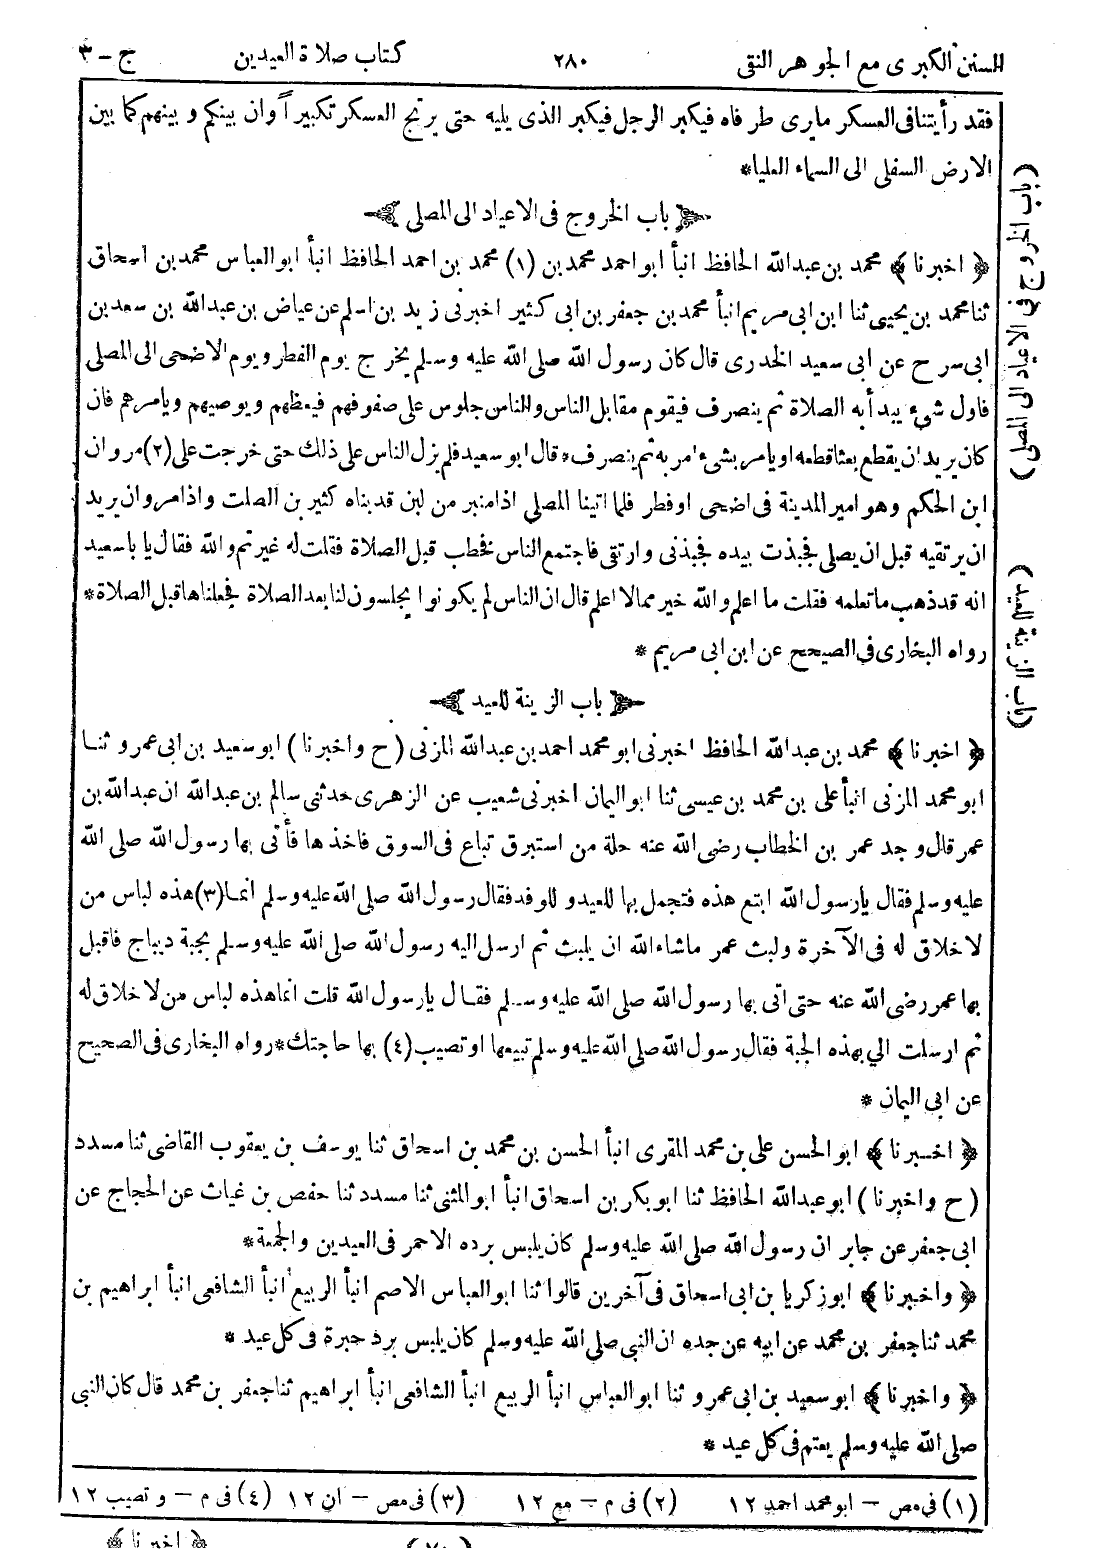 السنن الكبرى مع الجوهر النقى ٢٨٠ كتاب صلاة العيدين ج - ٣
فقد رأيتنا فى العسكر ما يرى طرفاه فيكبر الرجل فيكبر الذى يليه حتى يرتج العسكر تكبيراً وان بينكم و بينهم كما بين
الارض السفلى الى السماء العليا*
باب الخروج فى الاعياد الى المصلى
﴿ اخبرنا ﴾ محمد بن عبدالله الحافظ انبأ ابو احمد محمد بن (١) محمد بن احمد الحافظ انبأ ابوالعباس محمد بن اسحاق
ثنا محمد بن يحيى ثنا ابن ابى مريم انبأ محمد بن جعفر بن ابى كثير اخبرنى زيد بن اسلم عن عياض بن عبدالله بن سعد بن
ابى سرح عن ابى سعيد الخدرى قال كان رسول الله صلى الله عليه وسلم يخرج يوم الفطر ويوم الاضحى الى المصلى
فاول شىء يبدأ به الصلاة ثم ينصرف فيقوم مقابل الناس والناس جلوس على صفوفهم فيعظهم ويوصيهم ويامرهم فان
كان يريد ان يقطع بعثا قطعه او يامر بشىء امر به ثم ينصرف* قال ابو سعيد فلم يزل الناس على ذلك حتى خرجت على (٢) مروان
ابن الحكم وهو امير المدينة فى اضحى او فطر فلما اتينا المصلى اذا منبر من لبن قد بناه كثير بن الصلت واذا مروان يريد
ان يرتقيه قبل ان يصلى فجبذت بيده فجبذنى وارتقى فاجتمع الناس فخطب قبل الصلاة فقلت له غيرتم والله فقال يا با سعيد
انه قد ذهب ما تعلمه فقلت ما اعلم والله خير مما لا اعلم قال ان الناس لم يكونوا يجلسون لنا بعد الصلاة فجعلناها قبل الصلاة*
رواه البخارى فى الصحيح عن ابن ابى مريم *
باب الزينة للعيد
﴿ اخبرنا ﴾ محمد بن عبدالله الحافظ اخبرنى ابو محمد احمد بن عبدالله المزنى (ح واخبرنا) ابو سعيد بن ابى عمرو ثنا
ابو محمد المزنى انبأ على بن محمد بن عيسى ثنا ابو اليمان اخبرنى شعيب عن الزهرى حدثنى سالم بن عبدالله ان عبدالله بن
عمر قال وجد عمر بن الخطاب رضى الله عنه حلة من استبرق تباع فى السوق فاخذها فأتى بها رسول الله صلى الله
عليه وسلم فقال يا رسول الله ابتع هذه فتجمل بها للعيد وللوفد فقال رسول الله صلى الله عليه وسلم انما (٣) هذه لباس من
لا خلاق له فى الآخرة ولبث عمر ما شاء الله ان يلبث ثم ارسل اليه رسول الله صلى الله عليه وسلم بجبة ديباج فاقبل
بها عمر رضى الله عنه حتى اتى بها رسول الله صلى الله عليه وسلم فقال يا رسول الله قلت انما هذه لباس من لا خلاق له
ثم ارسلت الي بهذه الجبة فقال رسول الله صلى الله عليه وسلم تبيعها او تصيب (٤) بها حاجتك* رواه البخارى فى الصحيح
عن ابى اليمان *
﴿ اخبرنا ﴾ ابو الحسن على بن محمد المقرى انبأ الحسن بن محمد بن اسحاق ثنا يوسف بن يعقوب القاضى ثنا مسدد
(ح واخبرنا) ابو عبدالله الحافظ ثنا ابو بكر بن اسحاق انبأ ابو المثنى ثنا مسدد ثنا حفص بن غياث عن الحجاج عن
ابى جعفر عن جابر ان رسول الله صلى الله عليه وسلم كان يلبس برده الاحمر فى العيدين والجمعة*
﴿ واخبرنا ﴾ ابو زكريا بن ابى اسحاق فى آخرين قالوا ثنا ابو العباس الاصم انبأ الربيع انبأ الشافعى انبأ ابراهيم بن
محمد ثنا جعفر بن محمد عن ابيه عن جده ان النبى صلى الله عليه وسلم كان يلبس برد حبرة فى كل عيد *
﴿ واخبرنا ﴾ ابو سعيد بن ابى عمرو ثنا ابو العباس انبأ الربيع انبأ الشافعى انبأ ابراهيم ثنا جعفر بن محمد قال كان النبى
صلى الله عليه وسلم يعتم فى كل عيد *
(١) فى مص - ابو محمد احمد ١٢ (٢) فى م - مع ١٢ (٣) فى مص - ان ١٢ (٤) فى م - و تصيب ١٢
(باب الخروج فى الاعياد الى المصلى)
(باب الزينة للعيد)
﴿ اخبرنا ﴾